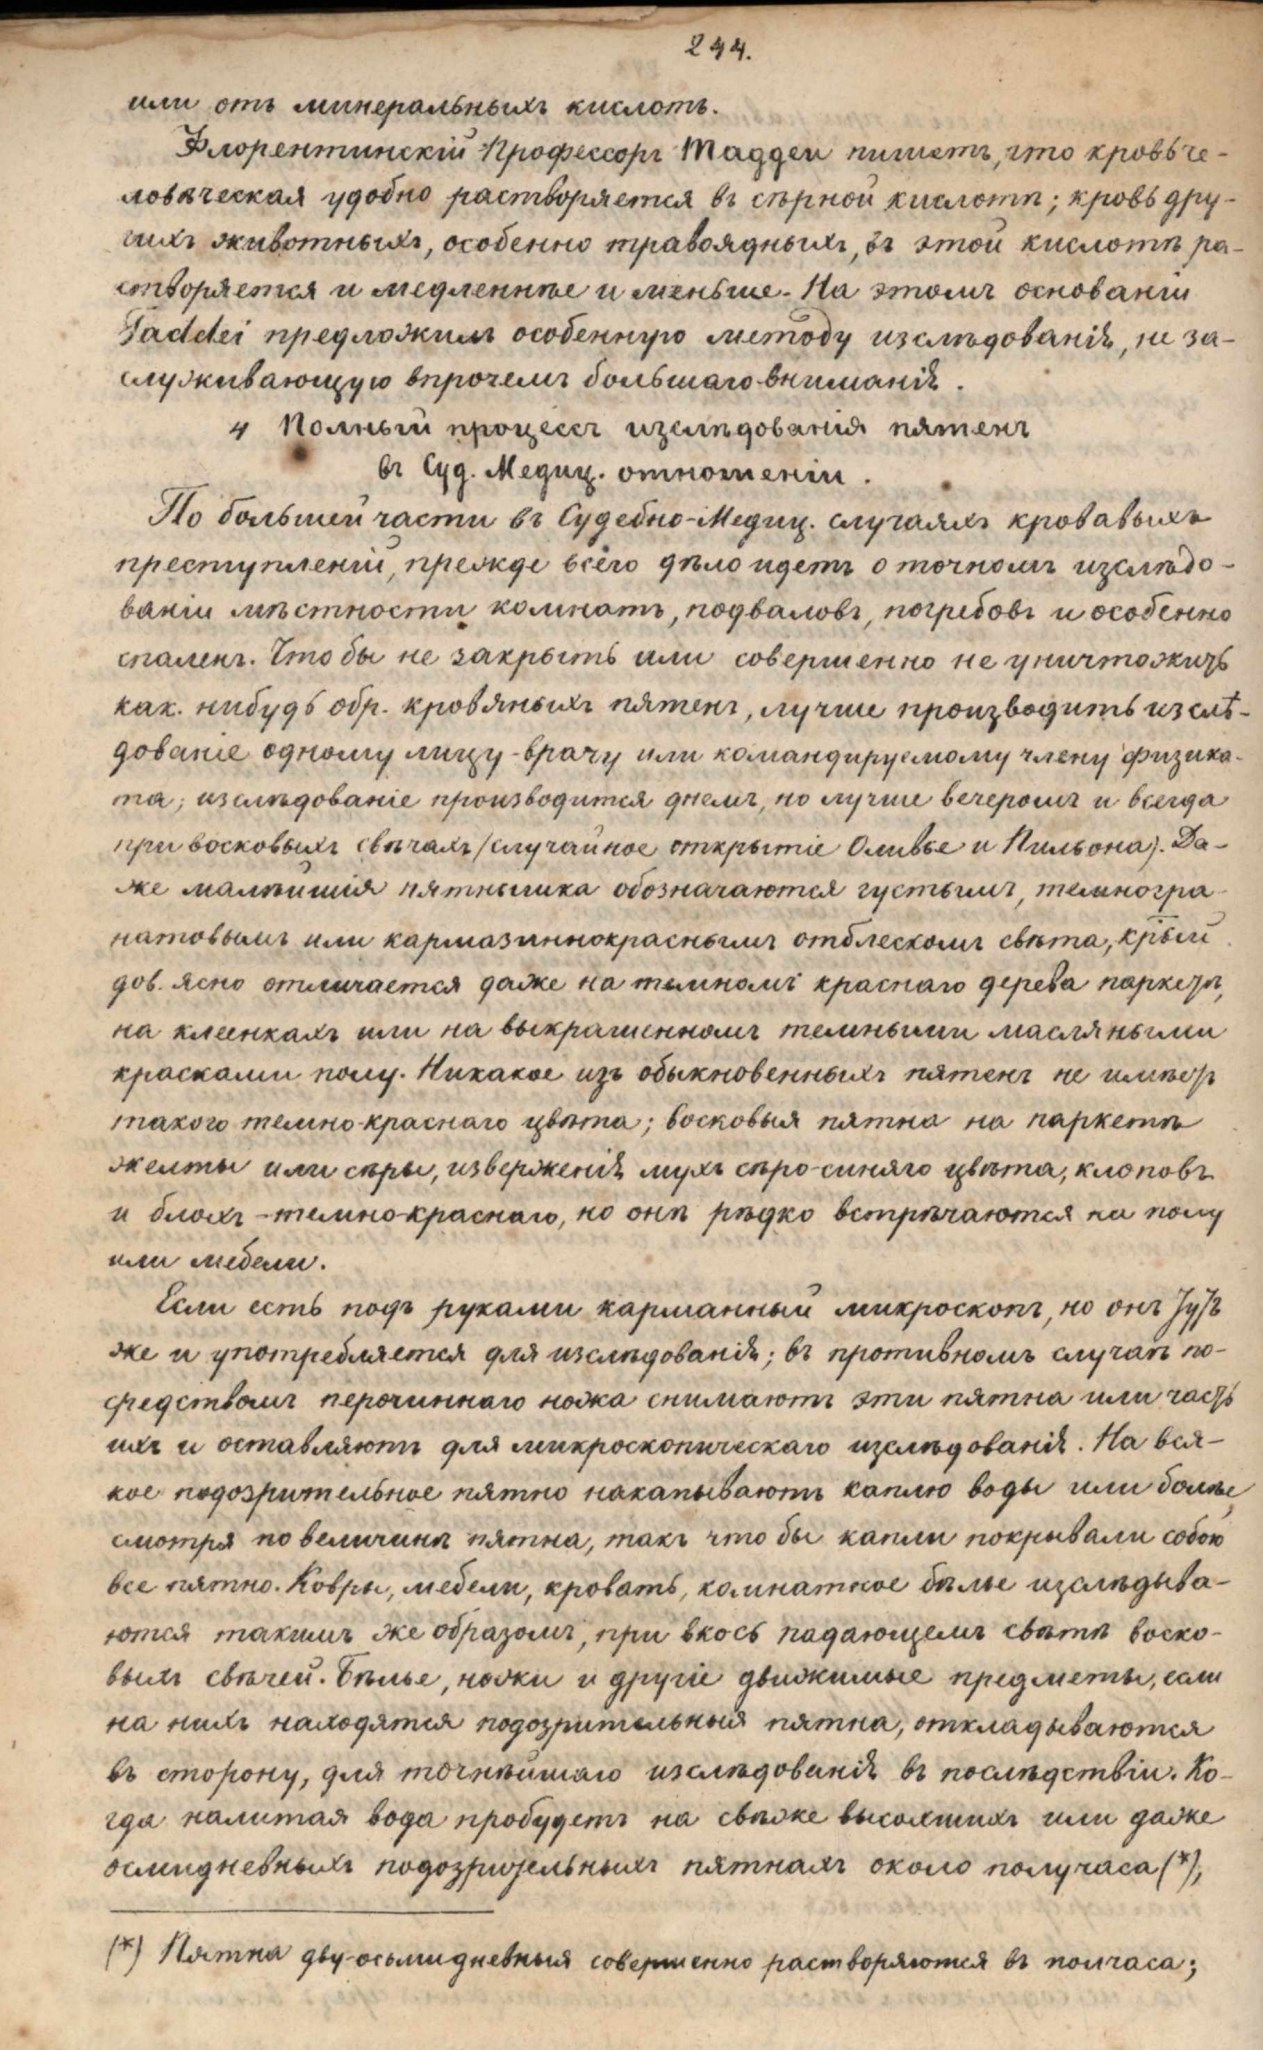 244.
или отъ минеральныхъ кислотъ.
Флорентинскій Профессоръ Таддеи пишетъ, что кровь че-
ловѣческая удобно растворяется въ сѣрной кислотѣ; кровь дру-
гихъ животныхъ, особенно травоядныхъ, въ этой кислотѣ ра-
створяется и медленнѣе и меньше. На этомъ основаніи
Taddei предложилъ особенную методу изслѣдованія, не за-
служивающую впрочемъ большаго вниманія.
4 Полный процессъ изслѣдованія пятенъ
въ Суд. Медиц. отношеніи.
По большей части въ Судебно-Медиц. случаяхъ кровавыхъ
преступленій, прежде всего дѣло идетъ о точномъ изслѣдо-
ваніи мѣстности комнатъ, подваловъ, погребовъ и особенно
спаленъ. Что бы не закрыть или совершенно не уничтожить
как. нибудь обр. кровяныхъ пятенъ, лучше производить изслѣ-
дованіе одному лицу-врачу или командируемому члену физика-
та; изслѣдованіе производится днемъ, но лучше вечеромъ и всегда
при восковыхъ свѣчахъ (случайное открытіе Оливье и Пильона). Да-
же малѣйшія пятнышка обозначаются густымъ, темногра-
натовымъ или кармазиннокраснымъ отблескомъ свѣта, крый
дов. ясно отличается даже на темномъ краснаго дерева паркетѣ,
на клеенкахъ или на выкрашенномъ темными масляными
красками полу. Никакое изъ обыкновенныхъ пятенъ не имѣетъ
такого темно-краснаго цвѣта; восковыя пятна на паркетѣ
желты или сѣры, изверженія мухъ сѣро-синяго цвѣта, клоповъ
и блохъ - темно-краснаго, но онѣ рѣдко встрѣчаются на полу
или мебели.
Если есть подъ руками карманный микроскопъ, но онъ тутъ
же и употребляется для изслѣдованія; въ противномъ случаѣ по-
средствомъ перочиннаго ножа снимаютъ эти пятна или часть
ихъ и оставляютъ для микроскопическаго изслѣдованія. На вся-
кое подозрительное пятно накапываютъ каплю воды или болѣе,
смотря по величинѣ пятна, такъ что бы капли покрывали собою
все пятно. Ковры, мебели, кровать, комнатное бѣлье изслѣдыва-
ются такимъ же образомъ, при вкось падающемъ свѣтѣ воско-
выхъ свѣчей. Бѣлье, ножи и другіе движимые предметы, если
на нихъ находятся подозрительныя пятна, откладываются
въ сторону, для точнѣйшаго изслѣдованія въ послѣдствіи. Ко-
гда налитая вода пробудетъ на свѣже высохшихъ или даже
осмидневныхъ подозрительныхъ пятнахъ около получаса (*),
(*) Пятна дву-осьмидневныя совершенно растворяются въ полчаса;